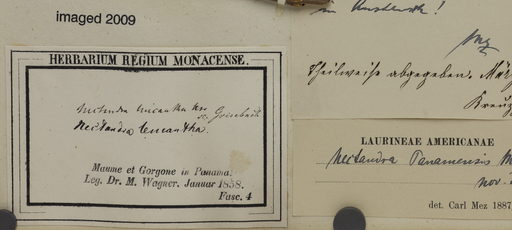 imaged 2009
HERBARIUM REGIUM MONACENSE.
Nectandra leucantha
Grisebach
Nectandra leucantha.
Maume et Gorgone in Panama.
Leg. Dr. M. Wagner. Januar 1858.
Fasc. 4
Mez
Theilweise abgegeben. März
LAURINEAE AMERICANAE
Nectandra Panamensis M
nov.
det. Carl Mez 1887